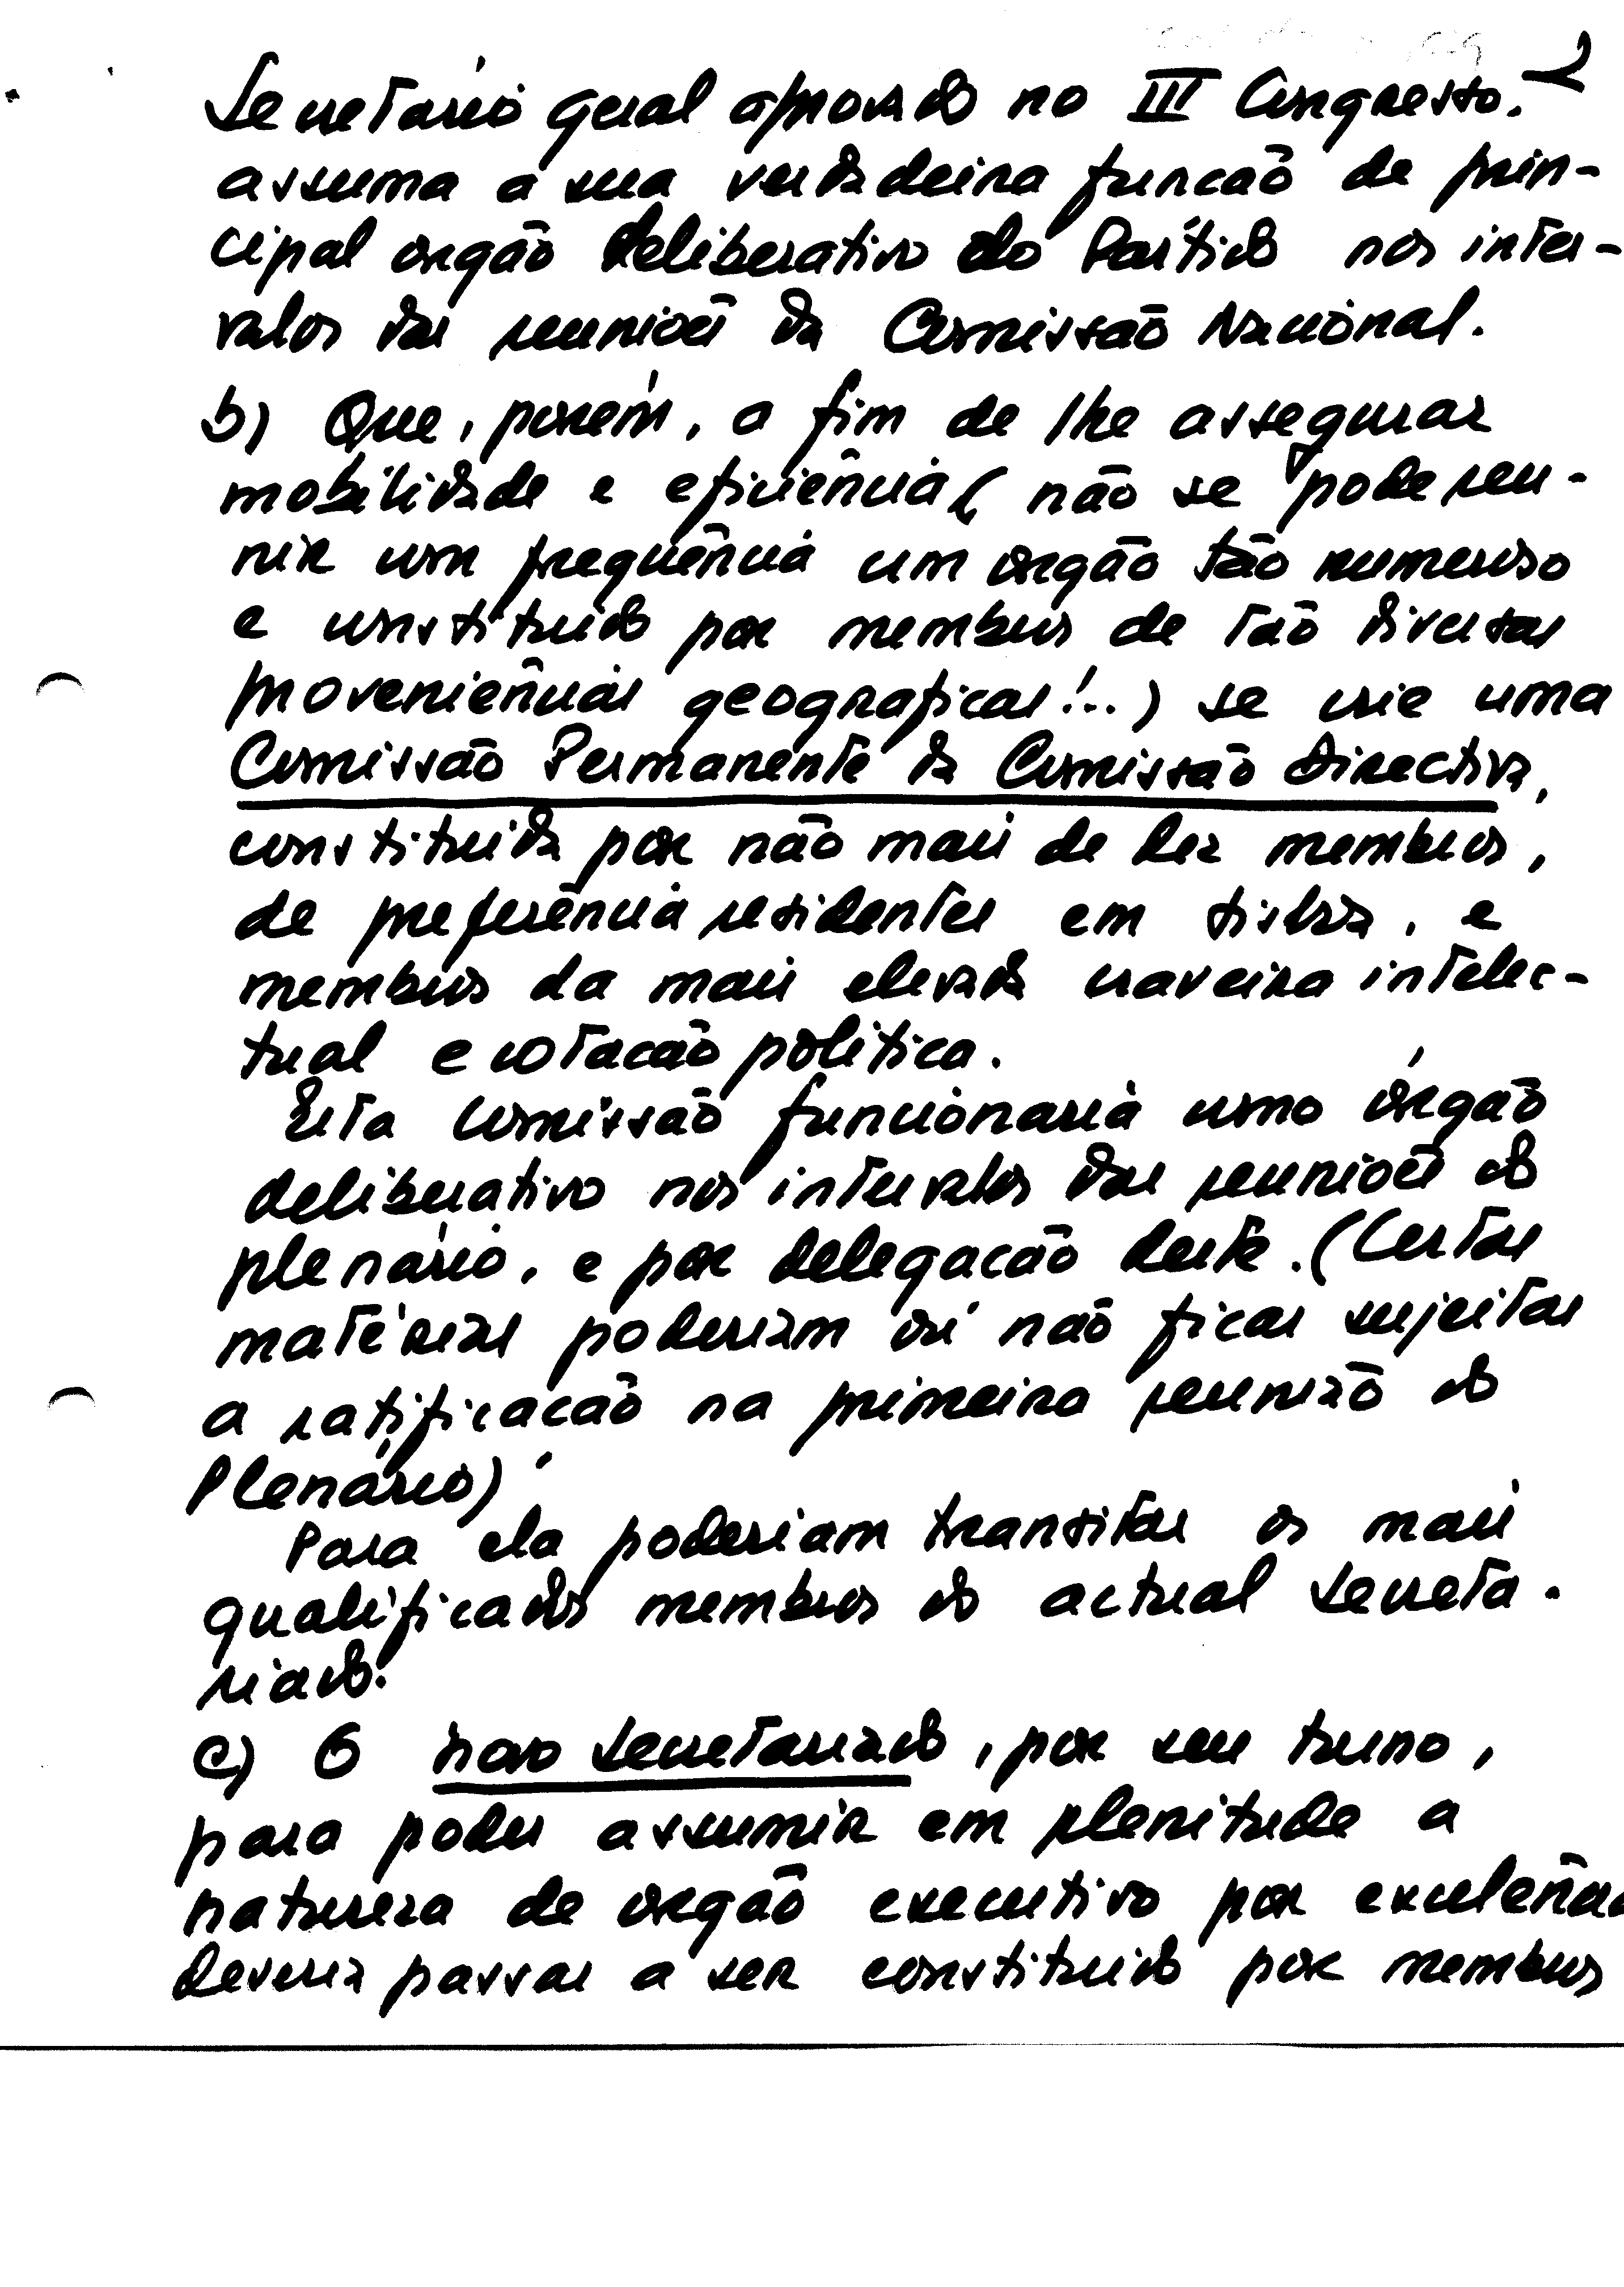 2
Secretário geral aprovado no III Congresso.
assuma a sua verdadeira funcão de prin-
cipal orgão deliberativo do Partido nos inter-
valos das reuniões da Comissão Nacional.
b) Que, porém, a fim de lhe assegurar
mobilidade e eficiência (não se pode reu-
nir com frequência um orgão tão numeroso
e constituido por membros de tão diversas
proveniências geograficas!...) se crie uma
Comissão Permanente da Comissão Directiva,
constituida por não mais de dez membros,
de preferência residentes em Lisboa, e
membros da mais elevada craveira intelec-
tual e cotacão politica.
Esta Comissão funcionaria como órgão
deliberativo nos intervalos das reuniões do
plenário, e por delegacão deste. (Certas
matérias poderiam ou não ficar sujeitas
a ratificacão na primeira reunião do
Plenário)
Para ela poderiam transitar os mais
qualificados membros do actual Secreta-
riado.
c) O novo Secretariado, por seu turno,
para poder assumir em plenitude a
natureza de orgão executivo por excelência
deveria passar a ser constituido por membros